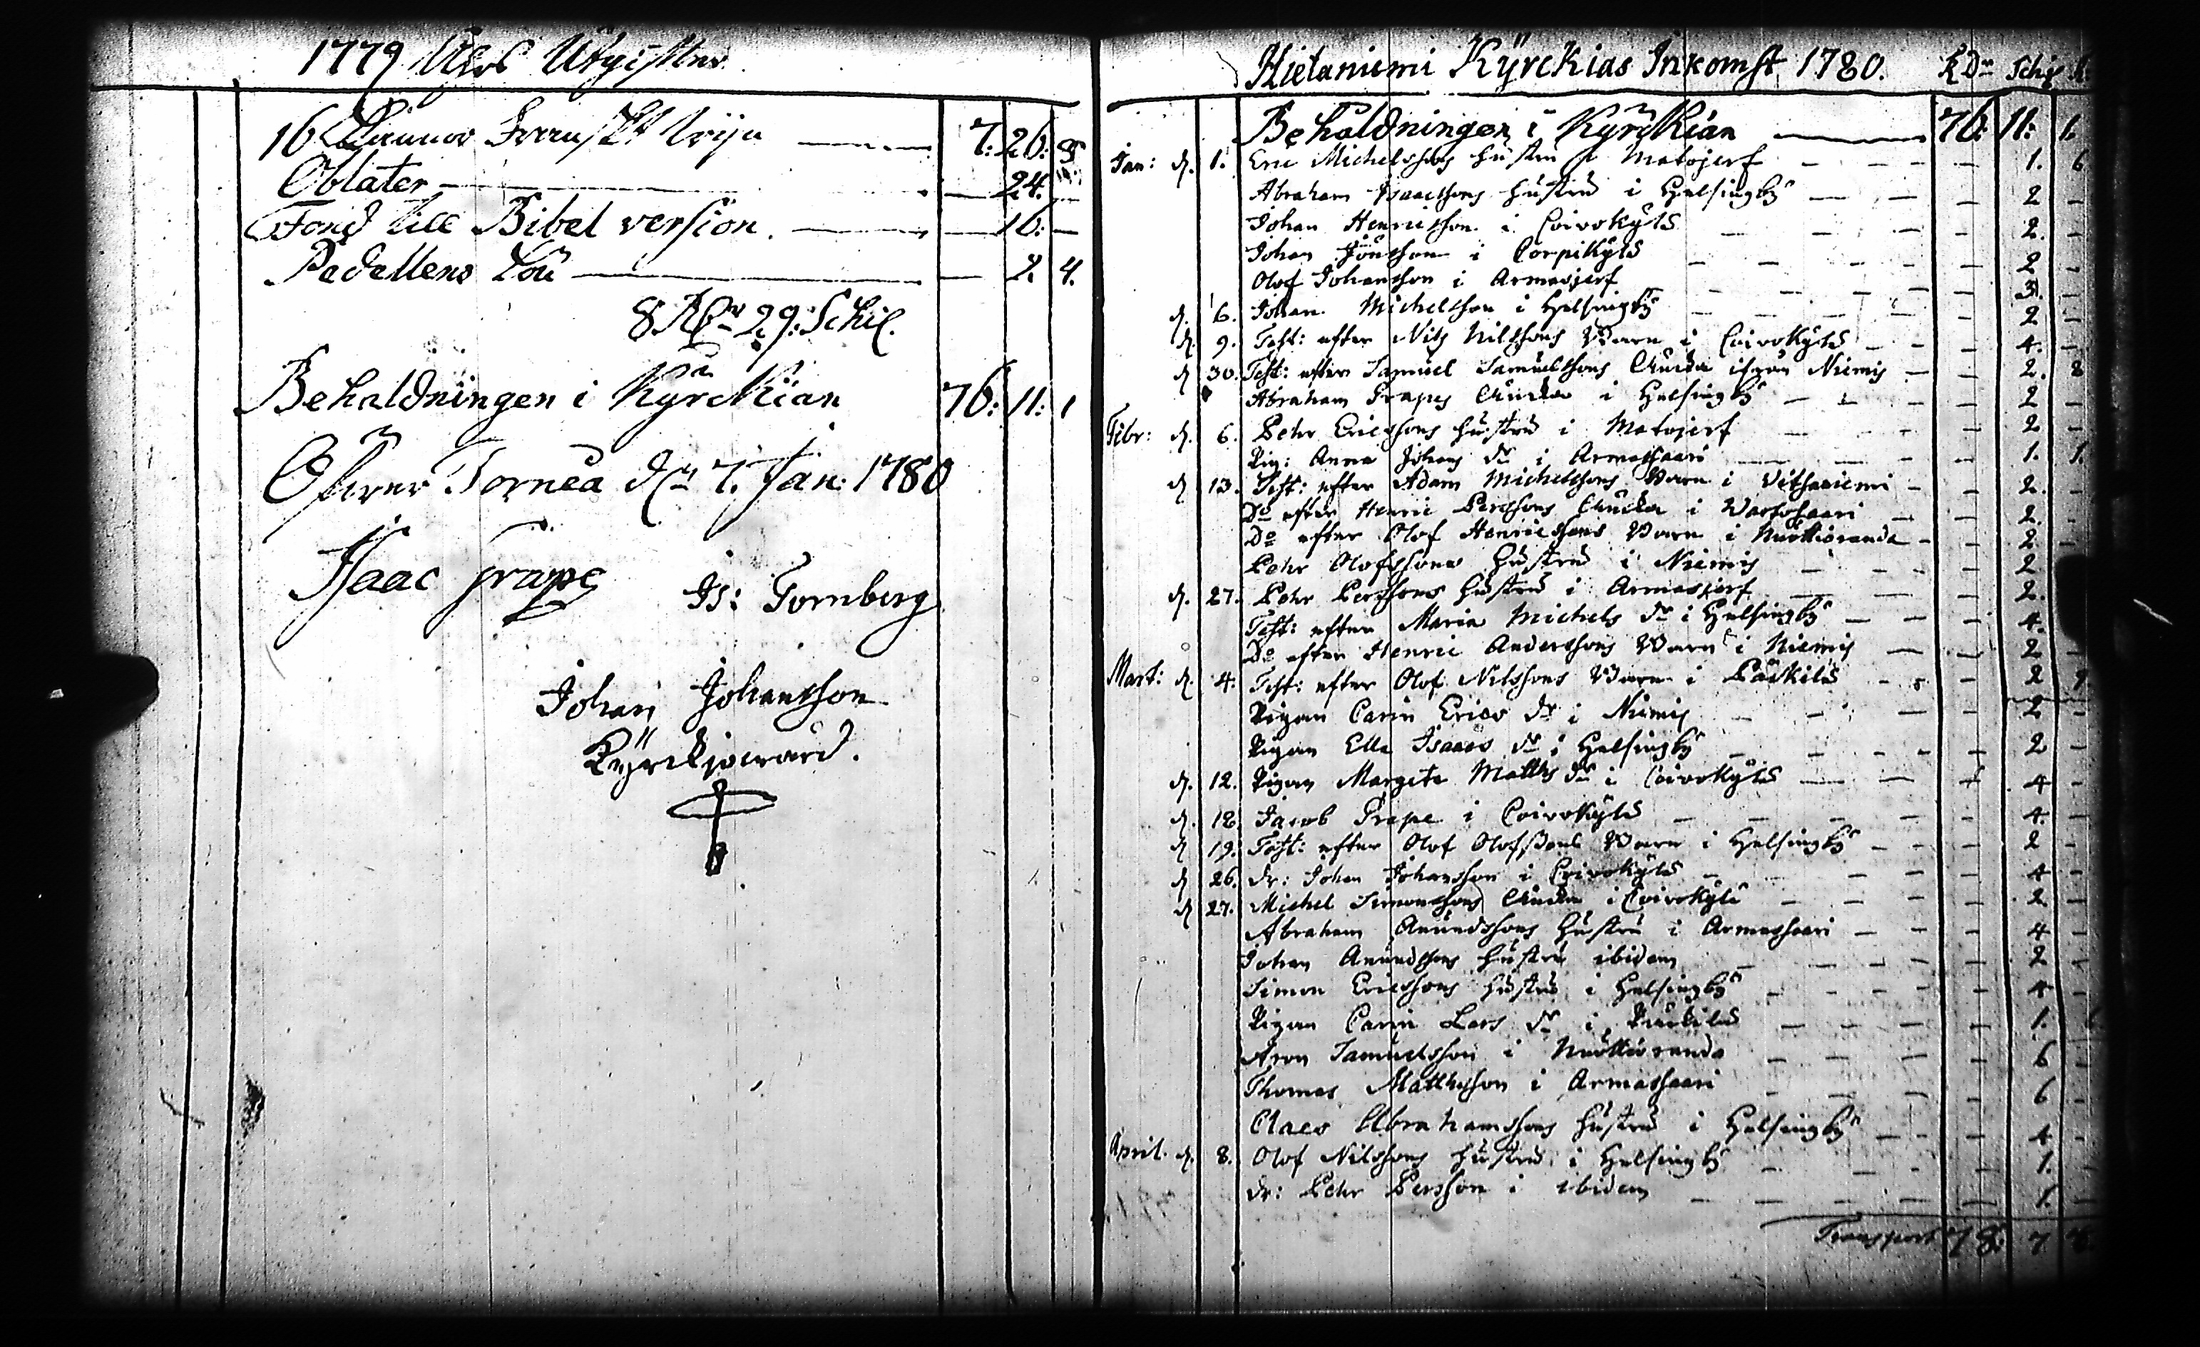 1779 Åhrs Utgifter
16 Kannor Franskt 7: 26:
Oblater 24.
Fond till Bibel version. 16:
Pedellens Lön 2. 4.
8 Rdr 29: Schil.
Behaldningen i Kyrckian 76: 11: 1
Öfwer Torneå dn 7. Jan: 1780
Isaac Grape
Is: Fornberg
Johan Johansson
Kyrckiowärd.
Hietaniemi Kyrckias Inkomst 1780. RDr Schil
Behaldningen i Kyrckian 76: 11: 1.
Jan: d. 1. Eric Michelssons hustru i Matojerf 1. 6
Abraham Isaacssons hustru i Helsingby 2
Johan Henricsson i Coivokylä 2.
Johan Jönsson i Corpikylä 2
Olof Johansson i Armasjerf 3.
d. 6. Johan Michelsson i Helsingby 2
d. 9. Test: efter Nils Nilssons Barn i Coivokylä 4.
d 30. Test: efter Samuel Samuelssons Äncka ifrån Niemis 2. 8
Abraham Grapes Äncka i Helsingby 2
Febr: d. 6. Pehr Ericssons hustru i Matojerf 2
Pig: Anna Johans dr i Armassaari 1. 1.
d 13. Test: efter Adam Michelssons Barn i Vitsaniemi 2.
Do efter Henric Perssons Äncka i 2.
Do efter Olof Henricssons Barn i Nuottioranda 2
Pehr Olofssons hustru i Niemis 2
d. 27. Pehr Perssons hustru i Armasjerf 2.
Test: efter Maria Michels dr i Helsingby 4.
Do efter Henric Anderssons Barn i Niemis 2
Mart: d. 4. Test: efter Olof Nilssons Barn i 2
Pigan Carin Erics dr i Niemis 2
Pigan Ella Isaacs dr i Helsingby 2
d. 12. Pigan Margeta Matths dr i Coivokylä 4
d. 18. Jacob Grape i Coivokylä 4
d 19. Test: efter Olof Olofssons Barn i Helsingby 2
d 26. dr: Johan Johansson i Coivokylä 4
d 27. Michel Simonssons Äncka i Coivokylä 2
Abraham Anundssons hustru i Armassaari 4
Johan Anundssons hustru ibidem 2
Simon Ericssons hustru i Helsingby 4
Pigan Carin Lars dr i 1.
Aron Samuelsson i Nuottioranda 6
Thomas Matthsson i Armassaari 6
Claes Abrahamssons hustru i Helsingby 4
April. d. 8. Olof Nilssons hustru i Helsingby 1.
dr: Pehr Persson i ibidem 1.
Transport 78: 7